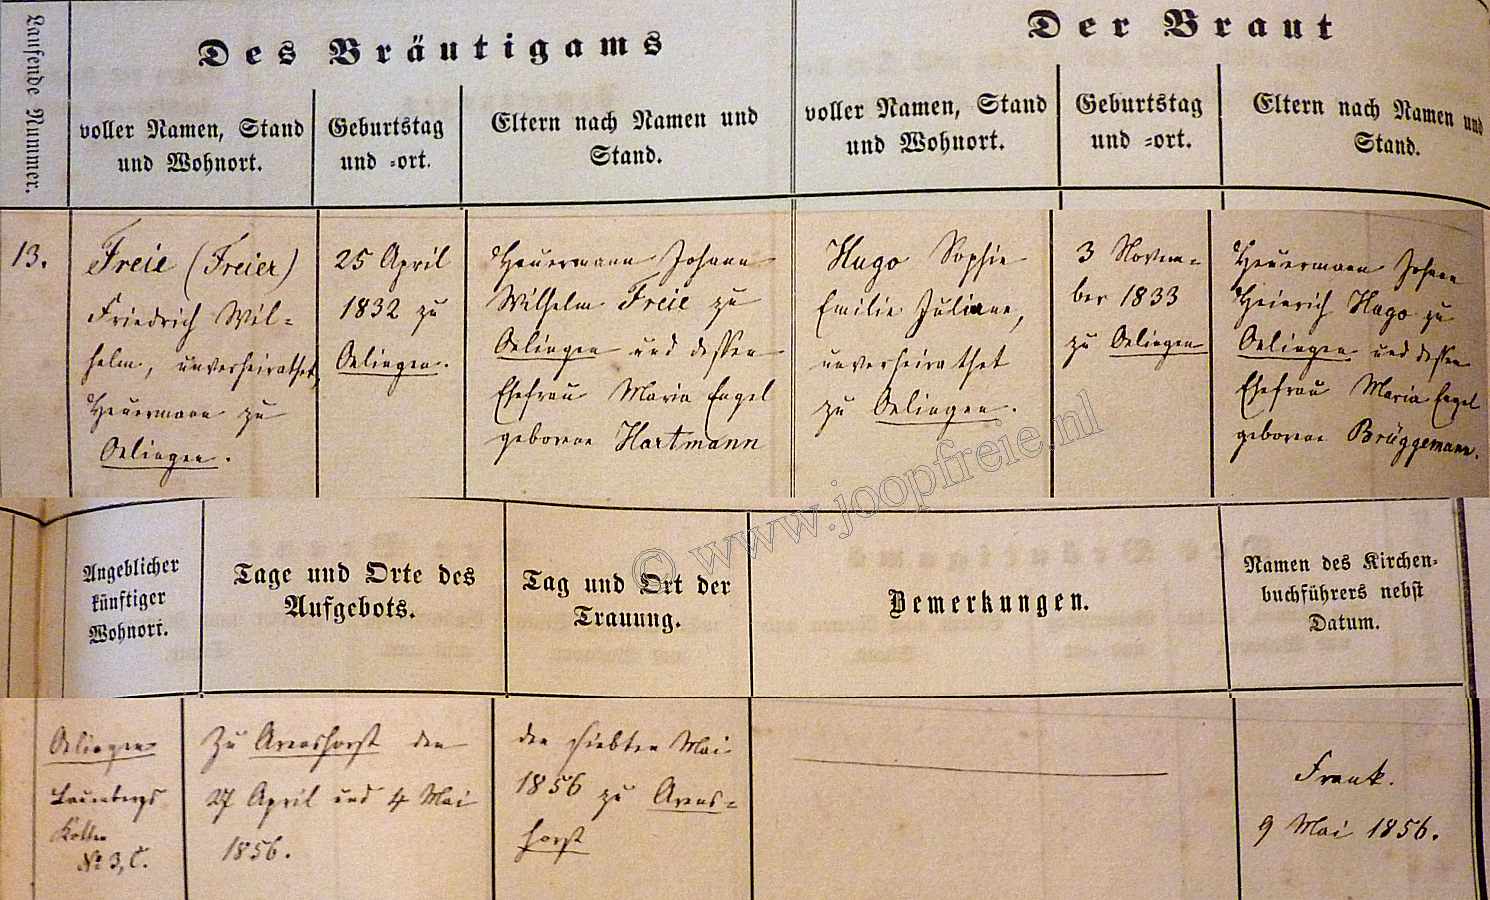 Laufende Nummer.
Des Bräutigams
Der Braut
voller Namen, Stand
und Wohnort.
Geburtstag
und =ort.
Eltern nach Namen und
Stand.
voller Namen, Stand
und Wohnort.
Geburtstag
und =ort.
Eltern nach Namen und
Stand.
13.
Freie (Freier)
Friedrich Wil=
helm, unverheirathet,
Heuermann zu
Oelingen.
25 April
1832 zu
Oelingen.
Heuermann Johann
Wilhelm Freie zu
Oelingen und dessen
Ehefrau Maria Engel
geborene Hartmann
Hugo Sophie
Emilie Juliane,
unverheirathet
zu Oelingen.
3 Novem=
ber 1833
zu Oelingen
Heuermann Johann
Heinrich Hugo zu
Oelingen und dessen
Ehefrau Maria Engel
geborene Brüggemann.
© www.joopfreie.nl
Angeblicher
künftiger
Wohnort.
Tage und Orte des
Aufgebots.
Tag und Ort der
Trauung.
Bemerkungen.
Namen des Kirchen=
buchführers nebst
Datum.
Oelingen
Kotten
No 3, C.
Zu Arenshorst den
27 April und 4 Mai
1856.
den siebten Mai
1856 zu Arens=
horst
Frank.
9 Mai 1856.